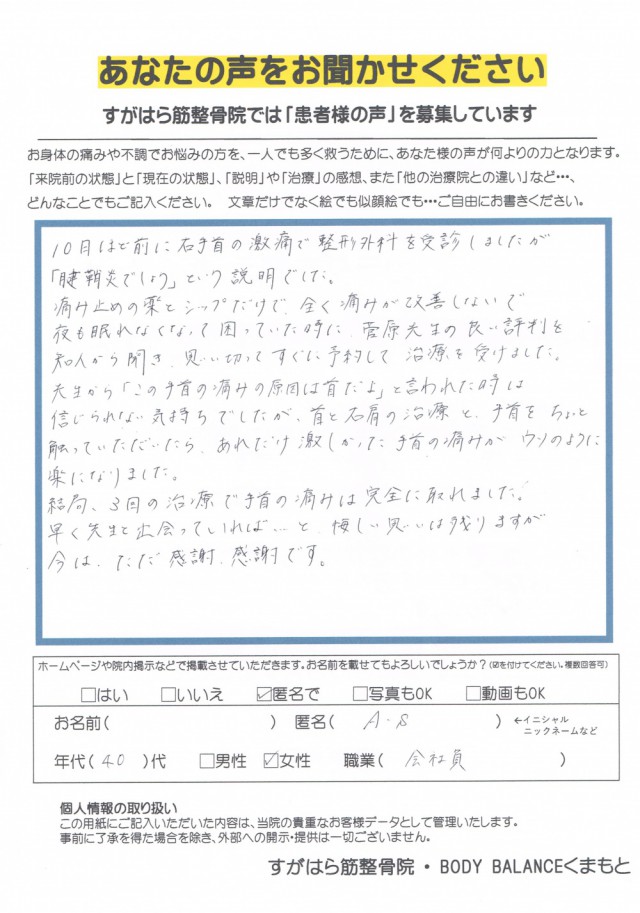 あなたの声をお聞かせください
すがはら筋整骨院では「患者様の声」を募集しています
お身体の痛みや不調でお悩みの方を、一人でも多く救うために、あなた様の声が何よりの力となります。
「来院前の状態」と「現在の状態」、「説明」や「治療」の感想、また「他の治療院との違い」など…、
どんなことでもご記入ください。 文章だけでなく絵でも似顔絵でも…ご自由にお書きください。
10月ほど前に右手首の激痛で整形外科を受診しましたが
「腱鞘炎でしょう」という説明でした。
痛み止めの薬とシップだけで、全く痛みが改善しないで
夜も眠れなくなって困っていた時に、菅原先生の良い評判を
知人から聞き、思い切ってすぐに予約して 治療を受けました。
先生から「この手首の痛みの原因は首だよ」と言われた時は
信じられない気持ちでしたが、首と右肩の治療と、手首をちょと
触っていただいたら、あれだけ激しかった手首の痛みが ウソのように
楽になりました。
結局、3回の治療で手首の痛みは完全に取れました。
早く先生と出会っていれば…と、悔しい思いは残りますが
今は、ただ感謝、感謝です。
ホームページや院内掲示などで掲載させていただきます。お名前を載せてもよろしいでしょうか?(☑を付けてください。複数回答可)
□はい □いいえ ☑匿名で □写真もOK □動画もOK
お名前( ) 匿名( A・S ) ←イニシャル
ニックネームなど
年代( 40 )代 □男性 ☑女性 職業( 会社員 )
個人情報の取り扱い
この用紙にご記入いただいた内容は、当院の貴重なお客様データとして管理いたします。
事前に了承を得た場合を除き、外部への開示・提供は一切ございません。
すがはら筋整骨院・BODY BALANCEくまもと